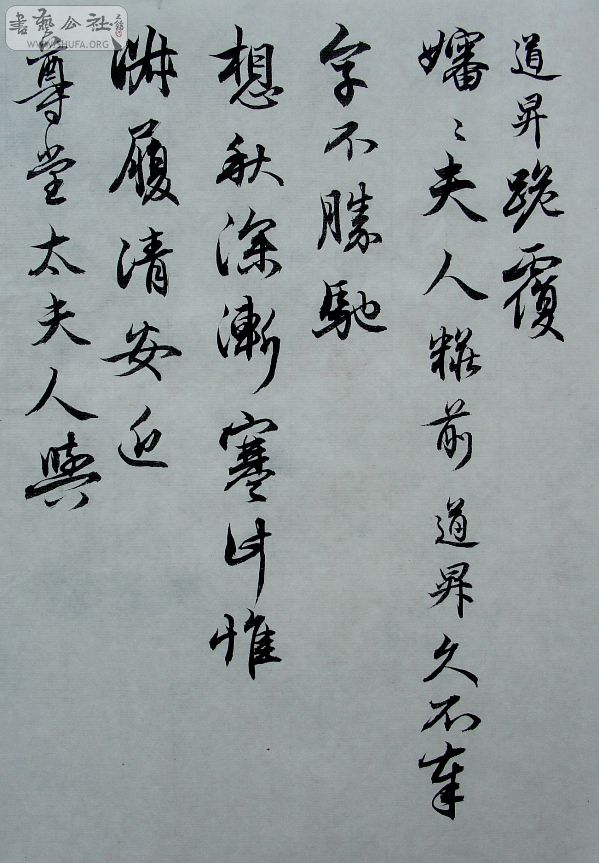 道昇跪覆
嬸〻夫人粧前道昇久不奉
字不勝馳
想秋深漸寒計惟
淑履清安近
尊堂太夫人與
書藝公社
WWW.SHUFA.ORG